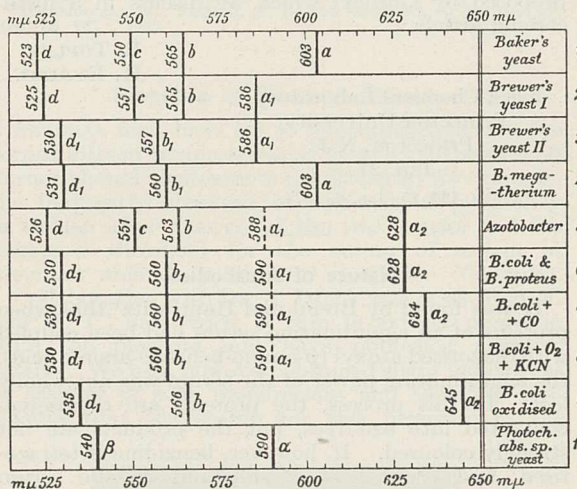 mμ 525 550 575 600 625 650 mμ
523 d 550 c 565 b 603 a Baker's yeast
525 d 551 c 565 b 586 a1 Brewer's yeast I
530 d1 557 b1 586 a1 Brewer's yeast II
531 d1 560 b1 603 a B. mega-therium
526 d 551 c 563 b 588 a1 628 a2 Azotobacter
530 d1 560 b1 590 a1 628 a2 B.coli & B.proteus
530 d1 560 b1 590 a1 634 a2 B.coli + + CO
530 d1 560 b1 590 a1 B.coli + O2 + KCN
535 d1 566 b1 645 a2 B.coli oxidised
540 β 590 α Photoch. abs. sp. yeast
mμ 525 550 575 600 625 650 mμ